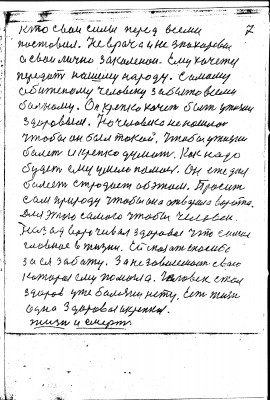 кто свои силы перед всеми 7
поставил. Не врача и не знахаревы
а свои лично закалении. Ему хочется
передать нашему народу. Самому
обиженому человеку забытому всеми
больному. Он крепко хочет быть ужизни
здоровьем. Но человека не нашлось
чтобы он был такой, чтобы ужизни
болеет и крепко думает. Как надо
будет ему умело помочь. Он его дня
болеет страдает об этом. Просит
сам природу чтобы она открыла ворота.
Для этого самого чтобы человек
Назад ворочивал здоровье что самое
главное в жизни. Ей сказать спасибо
за ея заботу. За независимость свою
которая ему помогла. Человек стал
здоров уже болезни нету. Есть жизнь
одна здоровая крепкая.
жизнь и смерть